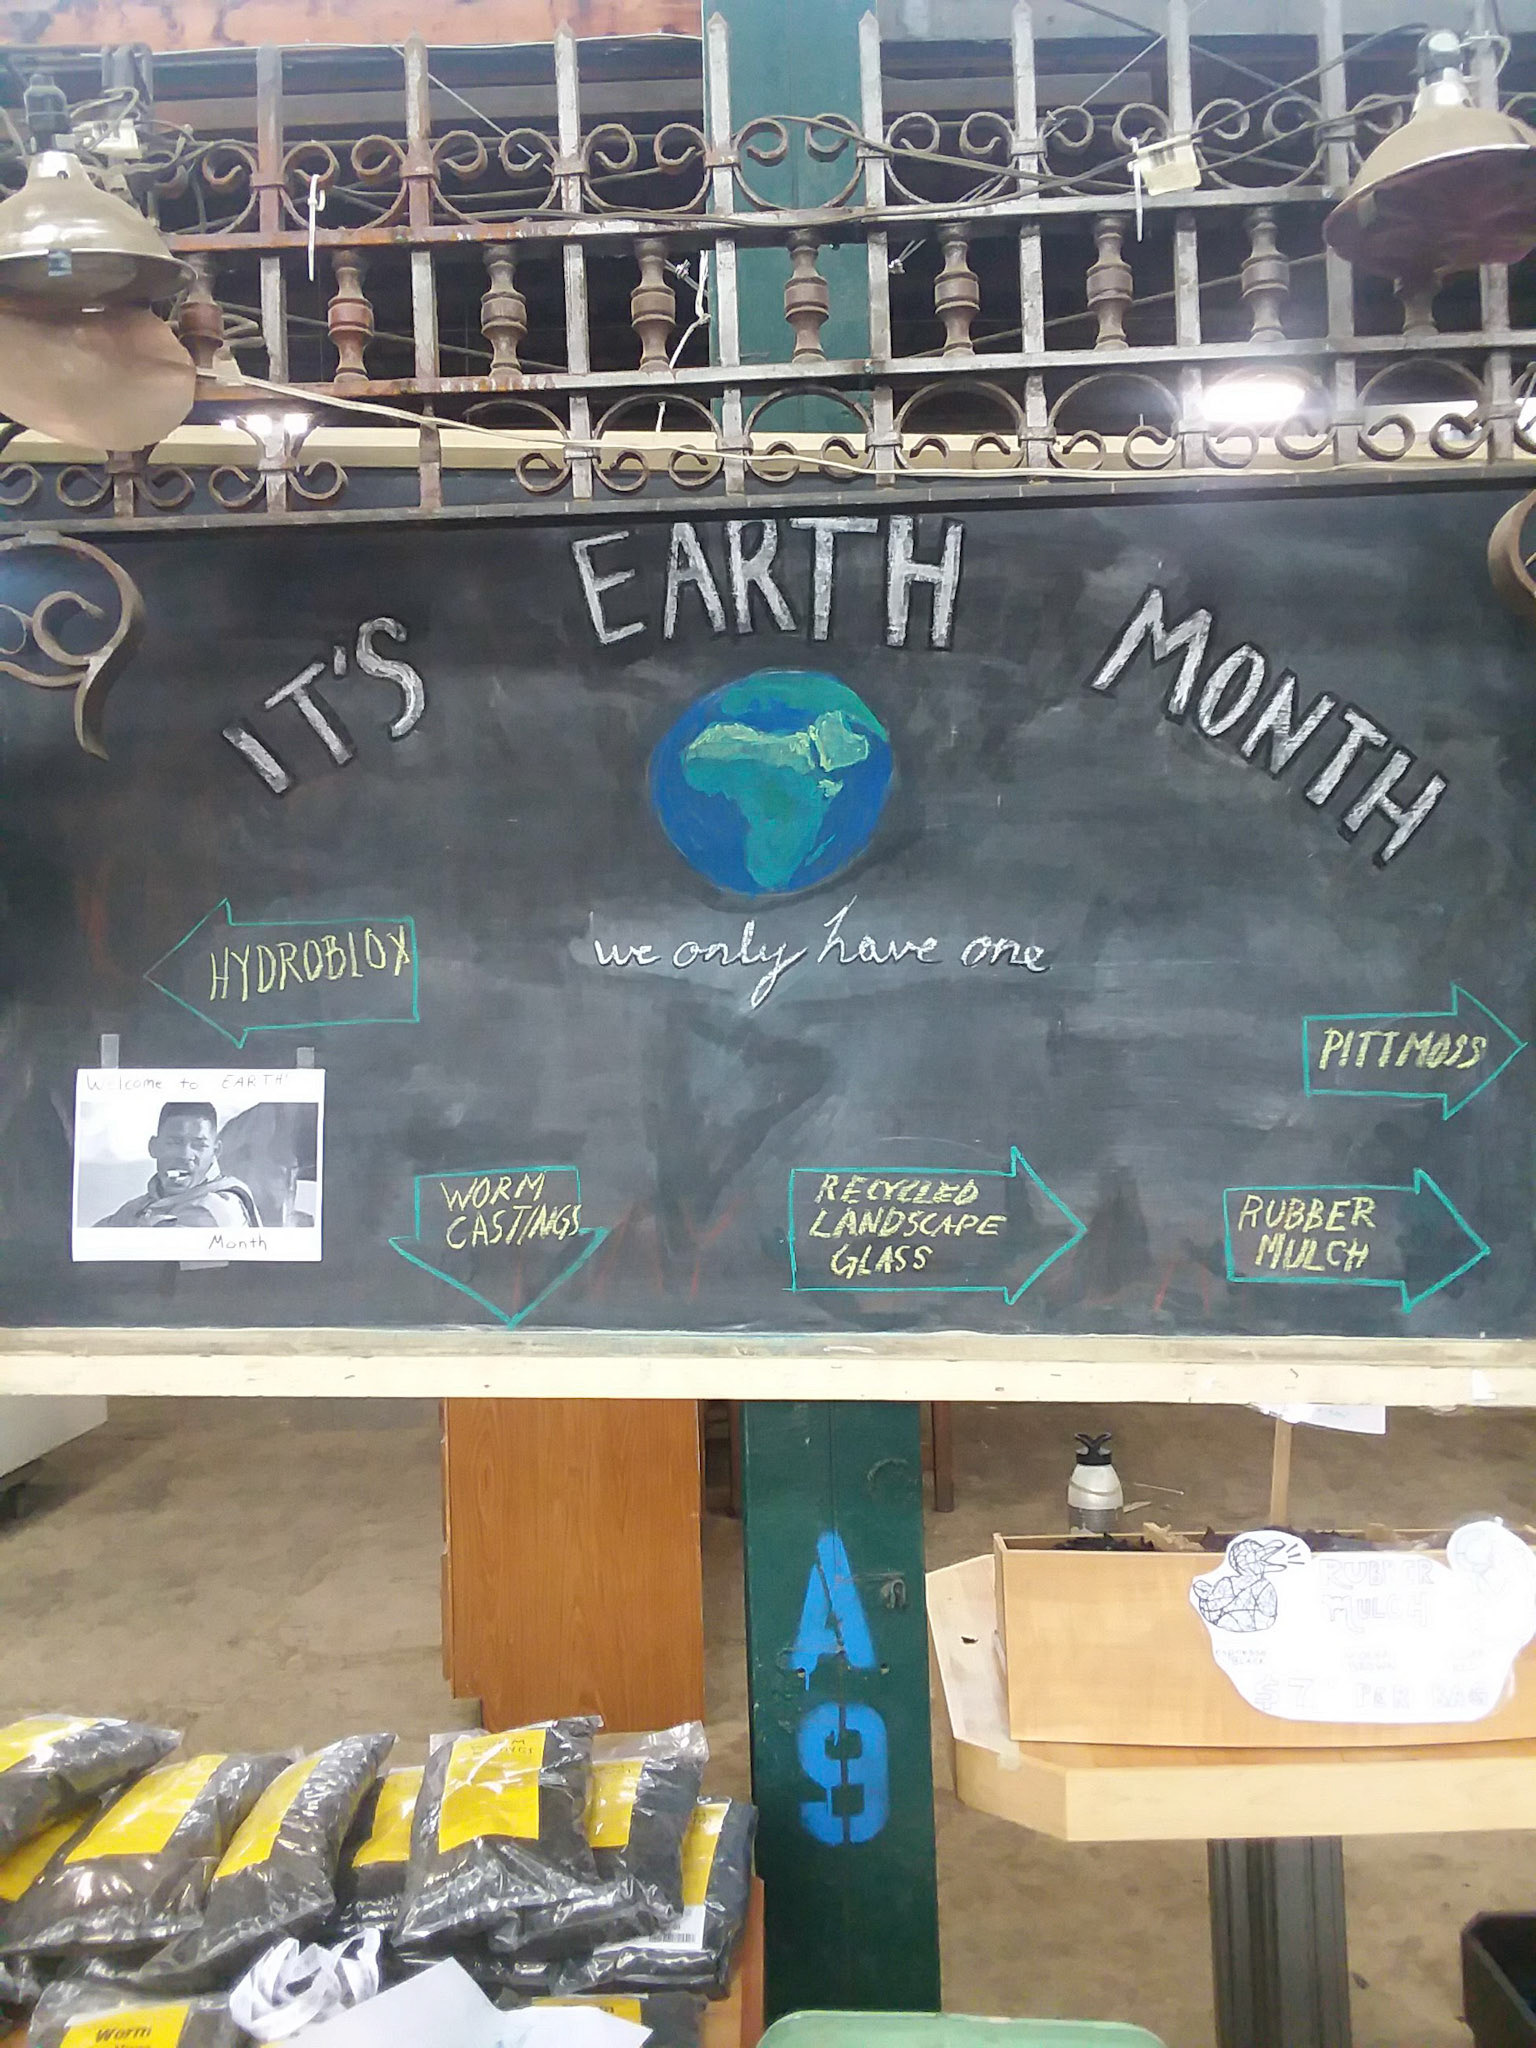 IT'S EARTH MONTH
we only have one
HYDROBLOX
Welcome to EARTH!
Month
PITTMOSS
WORM
CASTINGS
RECYCLED
LANDSCAPE
GLASS
RUBBER
MULCH
A9
RUBBER
MULCH
$7 PER BAG
WORM
Worm